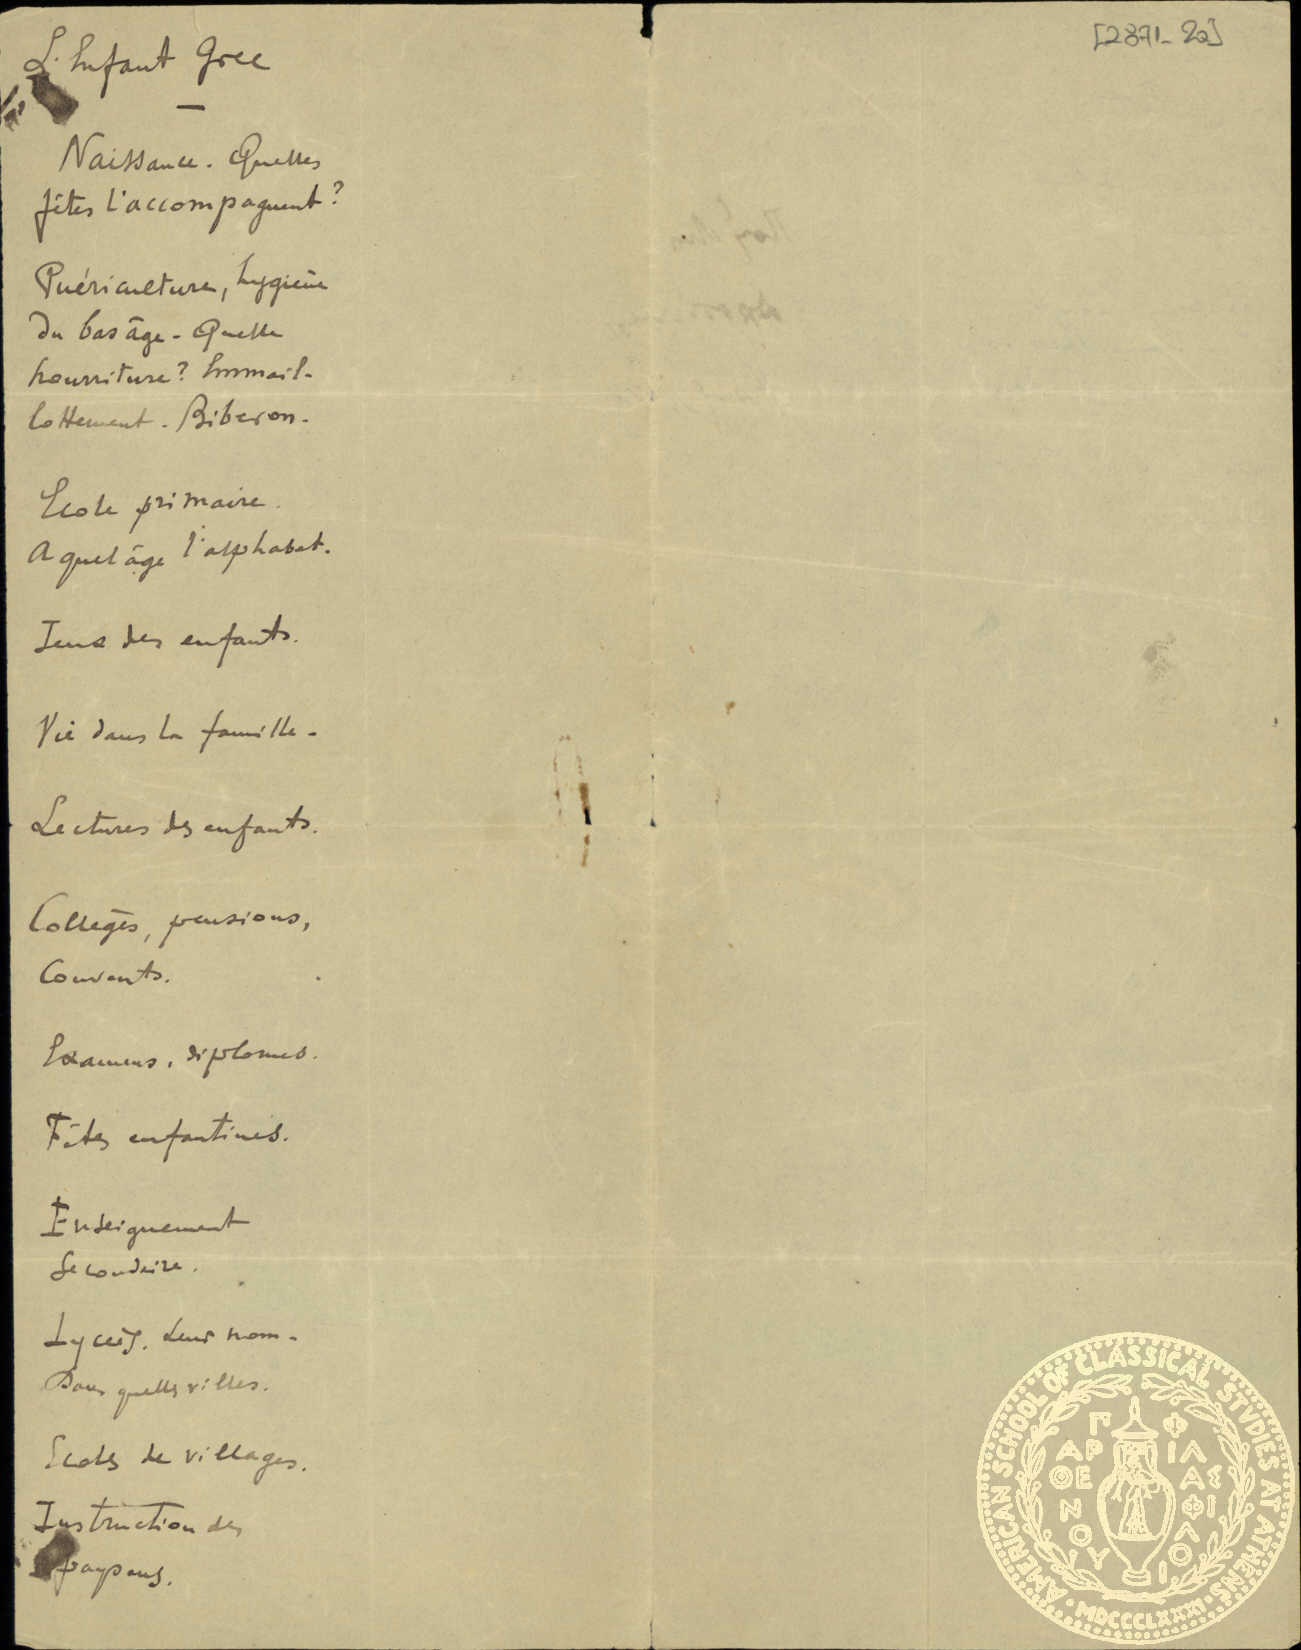 [2871-2a]
L'Enfant Grec
Naissance. Quelles
fêtes l'accompagnent?
Puériculture, hygiène
du bas âge - Quelle
nourriture? Emmail-
lottement. Biberon.
Ecole primaire.
A quel âge l'alphabet.
Jeux des enfants.
Vie dans la famille.
Lectures des enfants.
Collèges, pensions,
Couvents.
Examens, diplomes.
Fêtes enfantines.
Enseignement
Secondaire.
Lycées. Leur nom.
Dans quelles villes.
Ecoles de villages.
Instruction des
paysans.
AMERICAN SCHOOL OF CLASSICAL STVDIES AT ATHENS
MDCCCLXXXI
ΠΑΡΘΕΝΟΥ ΦΙΛΑΣ ΦΙΛΟΙ